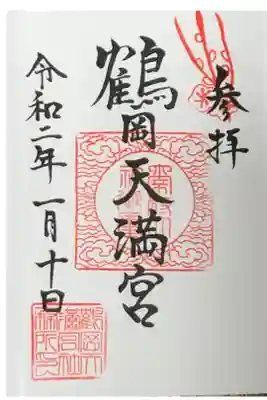 参拝
鶴岡天満宮
令和二年一月十日